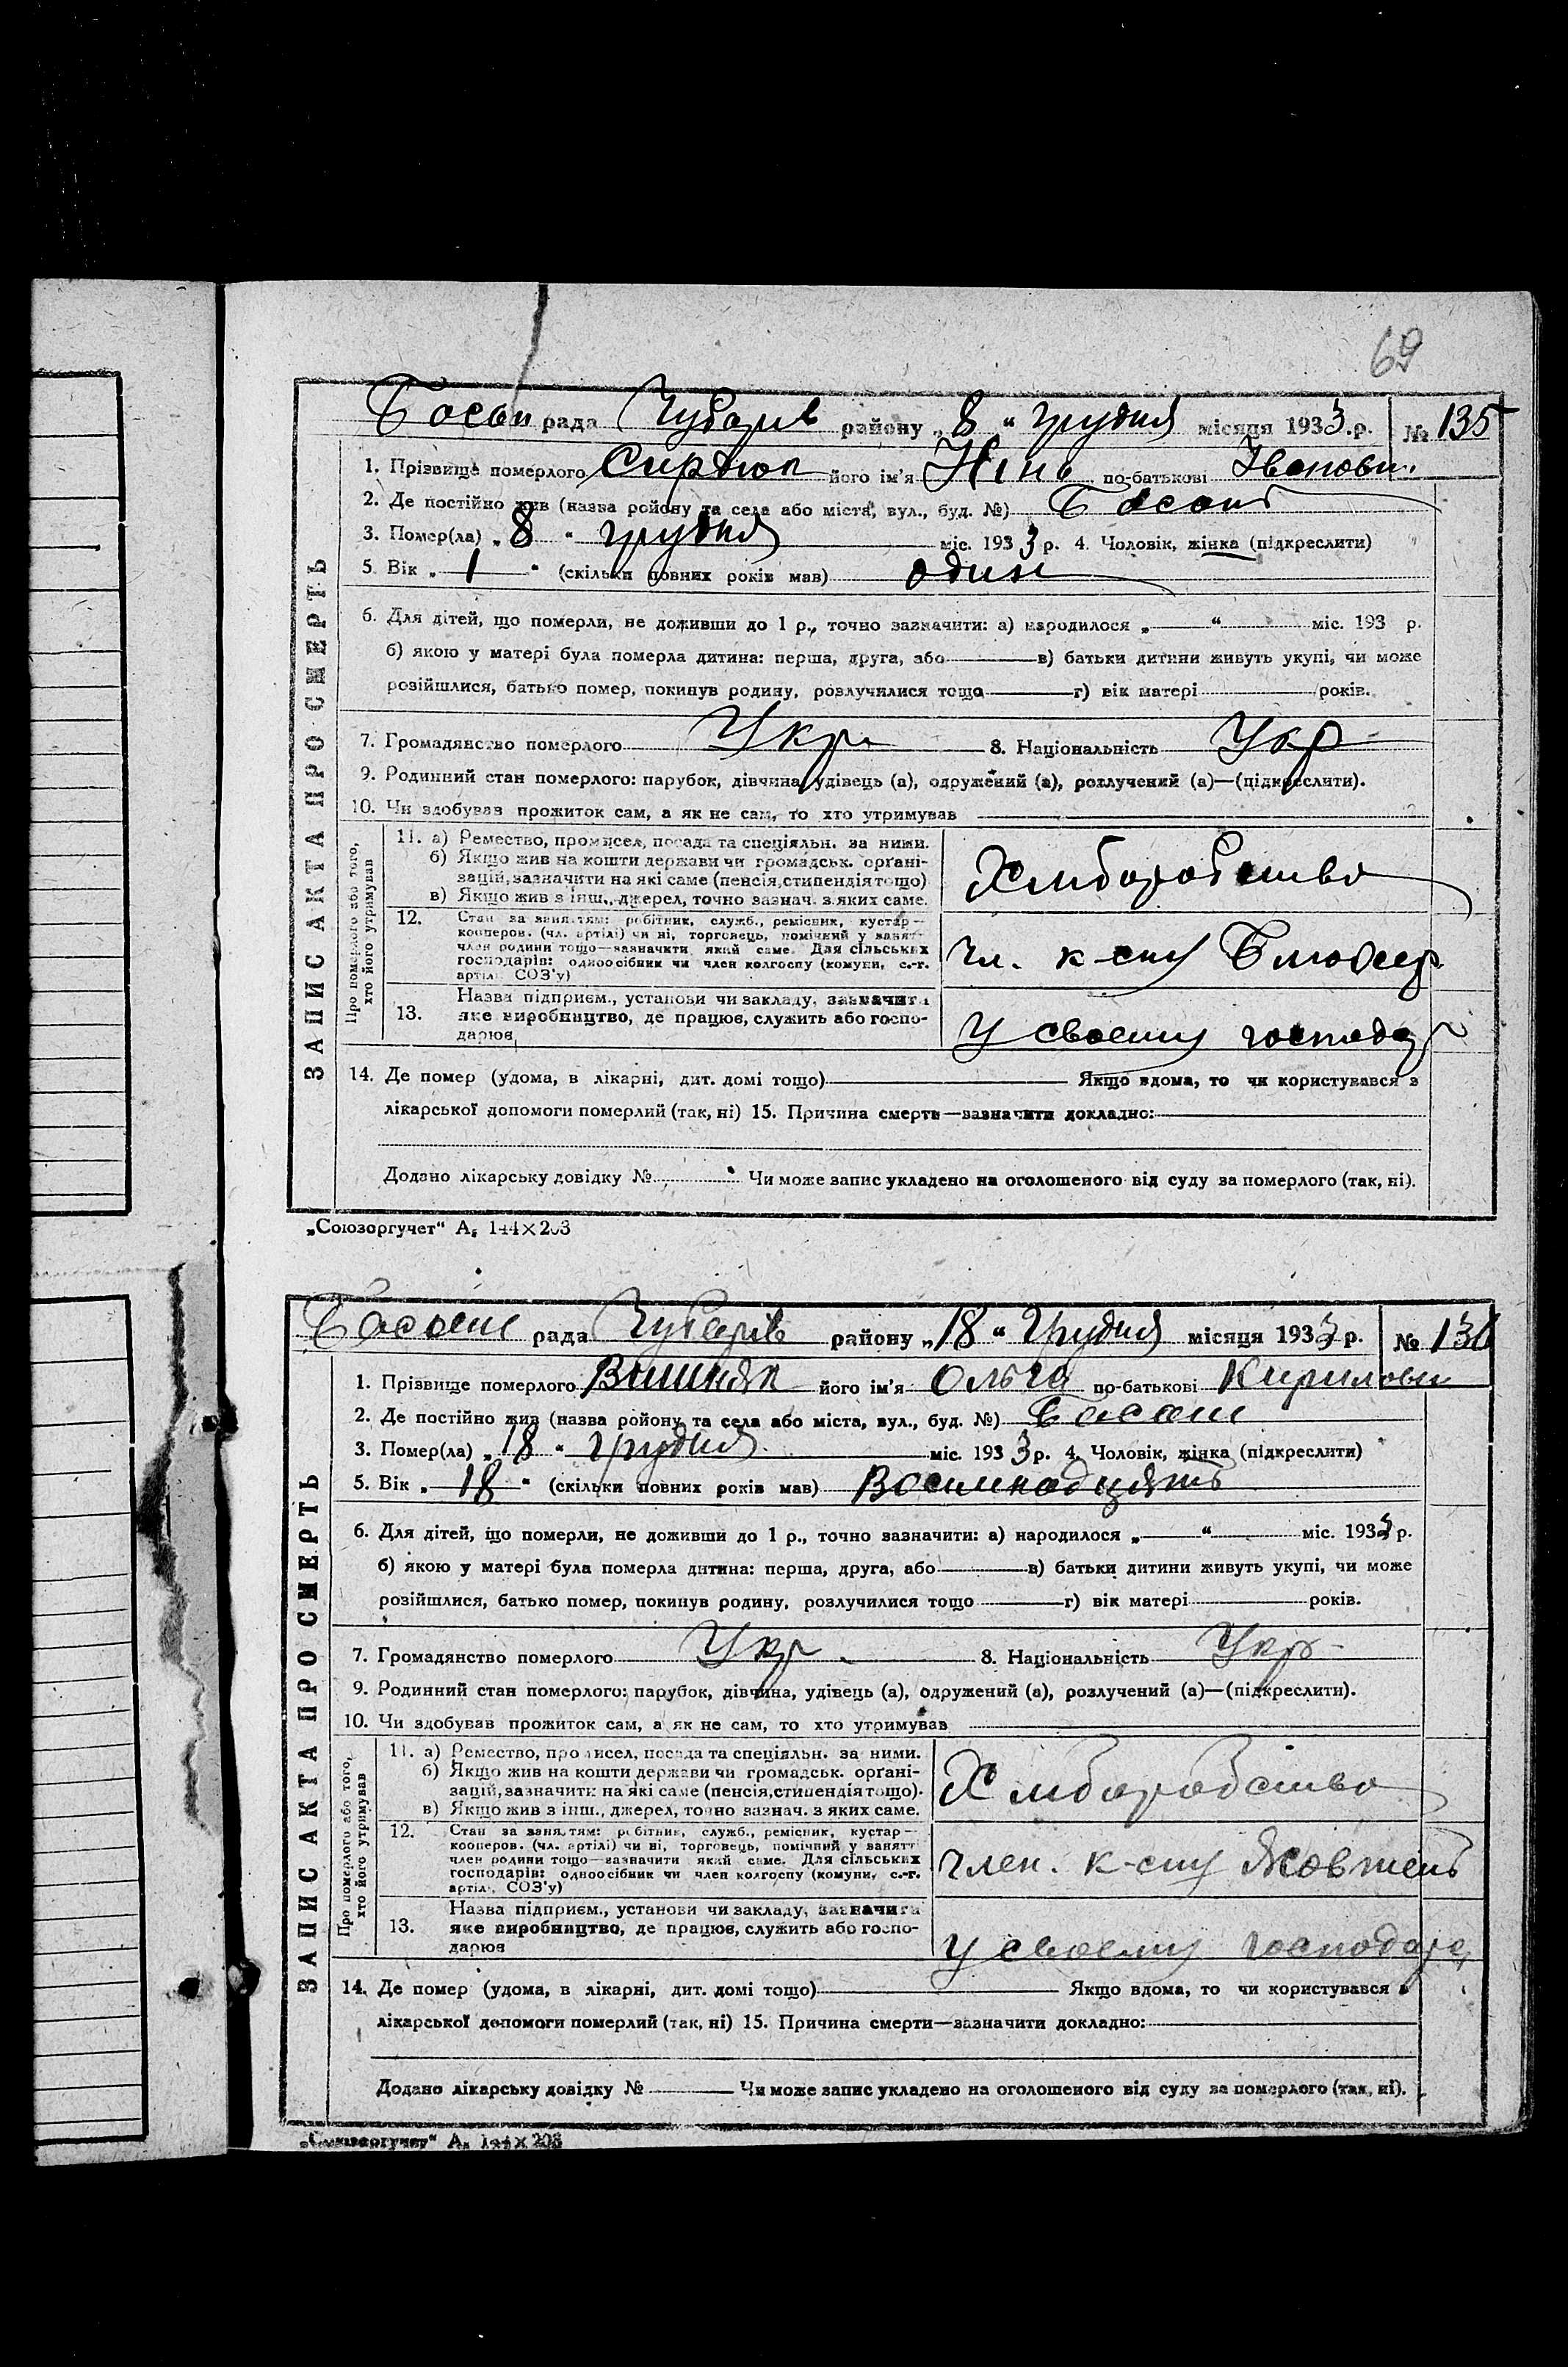 69
ЗАПИС АКТА ПРО СМЕРТЬ
Басан рада Чубарів району „8“ грудня місяця 1933 р. № 135
1. Прізвище померлого Сирдюк його ім'я Ніна по-батькові Іванови.
2. Де постійно жив (назва ройону та села або міста, вул., буд. №) Басань
3. Помер(ла) „8“ грудня міс. 1933 р. 4. Чоловік, жінка (підкреслити)
5. Вік „1“ (скільки повних років мав) один
6. Для дітей, що померли, не доживши до 1 р., точно зазначити: а) народилося „ “ міс. 193 р.
б) якою у матері була померла дитина: перша, друга, або в) батьки дитини живуть укупі, чи може
розійшлися, батько помер, покинув родину, розлучилися тощо г) вік матері років.
7. Громадянство померлого Укр. 8. Національність Укр
9. Родинний стан померлого: парубок, дівчина, удівець (а), одружений (а), розлучений (а)—(підкреслити).
10. Чи здобував прожиток сам, а як не сам, то хто утримував
Про померлого або того, хто його утримував
11. а) Ремество, промисел, посада та спеціяльн. за ними.
б) Якщо жив на кошти держави чи громадськ. орґані-
зацій, зазначити на які саме (пенсія, стипендія тощо)
в) Якщо жив з інш., джерел, точно зазнач. з яких саме.
Хліборобство
12. Стан за заняттям: робітник, служб., ремісник, кустар—
кооперов. (чл. артілі) чи ні, торговець, помічний у занятт
член родини тощо—зазначити який саме. Для сільських
господарів: одноосібник чи член колгоспу (комуни, с.-г.
артілі, СОЗ'у)
чл. к-спу
13. Назва підприєм., установи чи закладу, зазначити
яке виробництво, де працює, служить або госпо-
дарює
У своєму господар
14. Де помер (удома, в лікарні, дит. домі тощо) Якщо вдома, то чи користувався з
лікарської допомоги померлий (так, ні) 15. Причина смерти—зазначити докладно:
Додано лікарську довідку № Чи може запис укладено на оголошеного від суду за померлого (так, ні).
„Союзоргучет“ А₅ 144×203
ЗАПИС АКТА ПРО СМЕРТЬ
Басань рада Чубарів району „18“ Грудня місяця 1933 р. № 136
1. Прізвище померлого Вишняк його ім'я Ольга по-батькові Кирилови
2. Де постійно жив (назва ройону та села або міста, вул., буд. №) Басань
3. Помер(ла) „18“ грудня міс. 1933 р. 4. Чоловік, жінка (підкреслити)
5. Вік „18“ (скільки повних років мав) Восимнадцять
6. Для дітей, що померли, не доживши до 1 р., точно зазначити: а) народилося „ “ міс. 1933 р.
б) якою у матері була померла дитина: перша, друга, або в) батьки дитини живуть укупі, чи може
розійшлися, батько помер, покинув родину, розлучилися тощо г) вік матері років.
7. Громадянство померлого Укр. 8. Національність Укр
9. Родинний стан померлого: парубок, дівчина, удівець (а), одружений (а), розлучений (а)—(підкреслити).
10. Чи здобував прожиток сам, а як не сам, то хто утримував
Про померлого або того, хто його утримував
11. а) Ремество, промисел, посада та спеціяльн. за ними.
б) Якщо жив на кошти держави чи громадськ. орґані-
зацій, зазначити на які саме (пенсія, стипендія тощо).
в) Якщо жив з інш., джерел, точно зазнач. з яких саме.
Хліборобство
12. Стан за заняттям: робітник, служб., ремісник, кустар—
кооперов. (чл. артілі) чи ні, торговець, помічний у занятт
член родини тощо—зазначити який саме. Для сільських
господарів: одноосібник чи член колгоспу (комуни, с.-г.
артілі, СОЗ'у)
член. к-спу Жовтень
13. Назва підприєм., установи чи закладу, зазначити
яке виробництво, де працює, служить або госпо-
дарює
у своєму господар
14. Де помер (удома, в лікарні, дит. домі тощо) Якщо вдома, то чи користувався з
лікарської допомоги померлий (так, ні) 15. Причина смерти—зазначити докладно:
Додано лікарську довідку № Чи може запис укладено на оголошеного від суду за померлого (так, ні).
„Союзоргучет“ А₅ 144×203